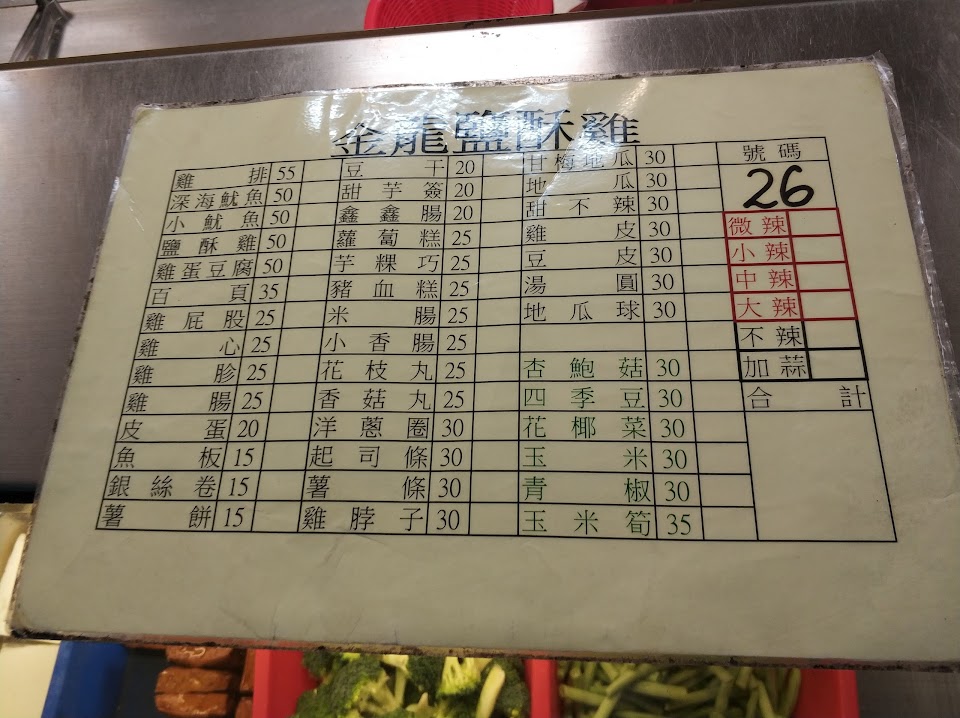 金龍鹽酥雞
雞排 55 豆干 20 甘梅地瓜 30 號碼
深海魷魚 50 甜芋簽 20 地瓜 30 26
小魷魚 50 鑫鑫腸 20 甜不辣 30
鹽酥雞 50 蘿蔔糕 25 雞皮 30 微辣
雞蛋豆腐 50 芋粿巧 25 豆皮 30 小辣
百頁 35 豬血糕 25 湯圓 30 中辣
雞屁股 25 米腸 25 地瓜球 30 大辣
雞心 25 小香腸 25 不辣
雞胗 25 花枝丸 25 杏鮑菇 30 加蒜
雞腸 25 香菇丸 25 四季豆 30 合計
皮蛋 20 洋蔥圈 30 花椰菜 30
魚板 15 起司條 30 玉米 30
銀絲卷 15 薯條 30 青椒 30
薯餅 15 雞脖子 30 玉米筍 35